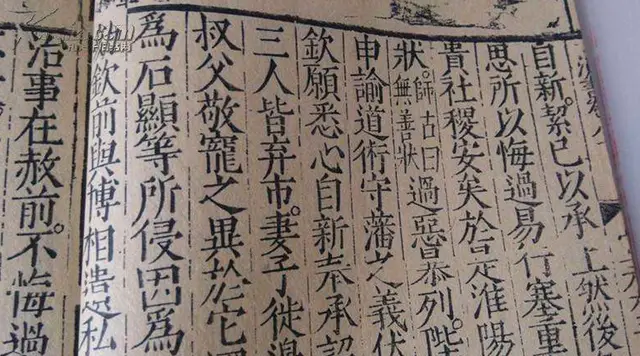 自新。絜己以承上然後
思所以悔過易行塞重
貴社稷安矣於是淮陽
狀。師古曰無善狀過惡暴列。陛
申諭道術守藩之義伏
欽願悉心自新奉承詔
三人皆弃市。妻子徙邊
叔父敬寵之異於它
為石顯等所侵因為
欽前與博相遺私
治事在赦前。不悔過